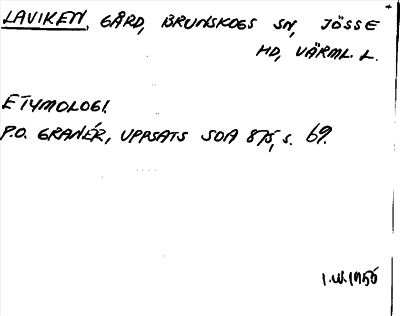 LAVIKEN, GÅRD, BRUNSKOGS SN, JÖSSE
HD, VÄRML. L.
ETYMOLOGI.
P.O. GRANÉR, UPPSATS SOA 875, S. 69.
I.W. 1956